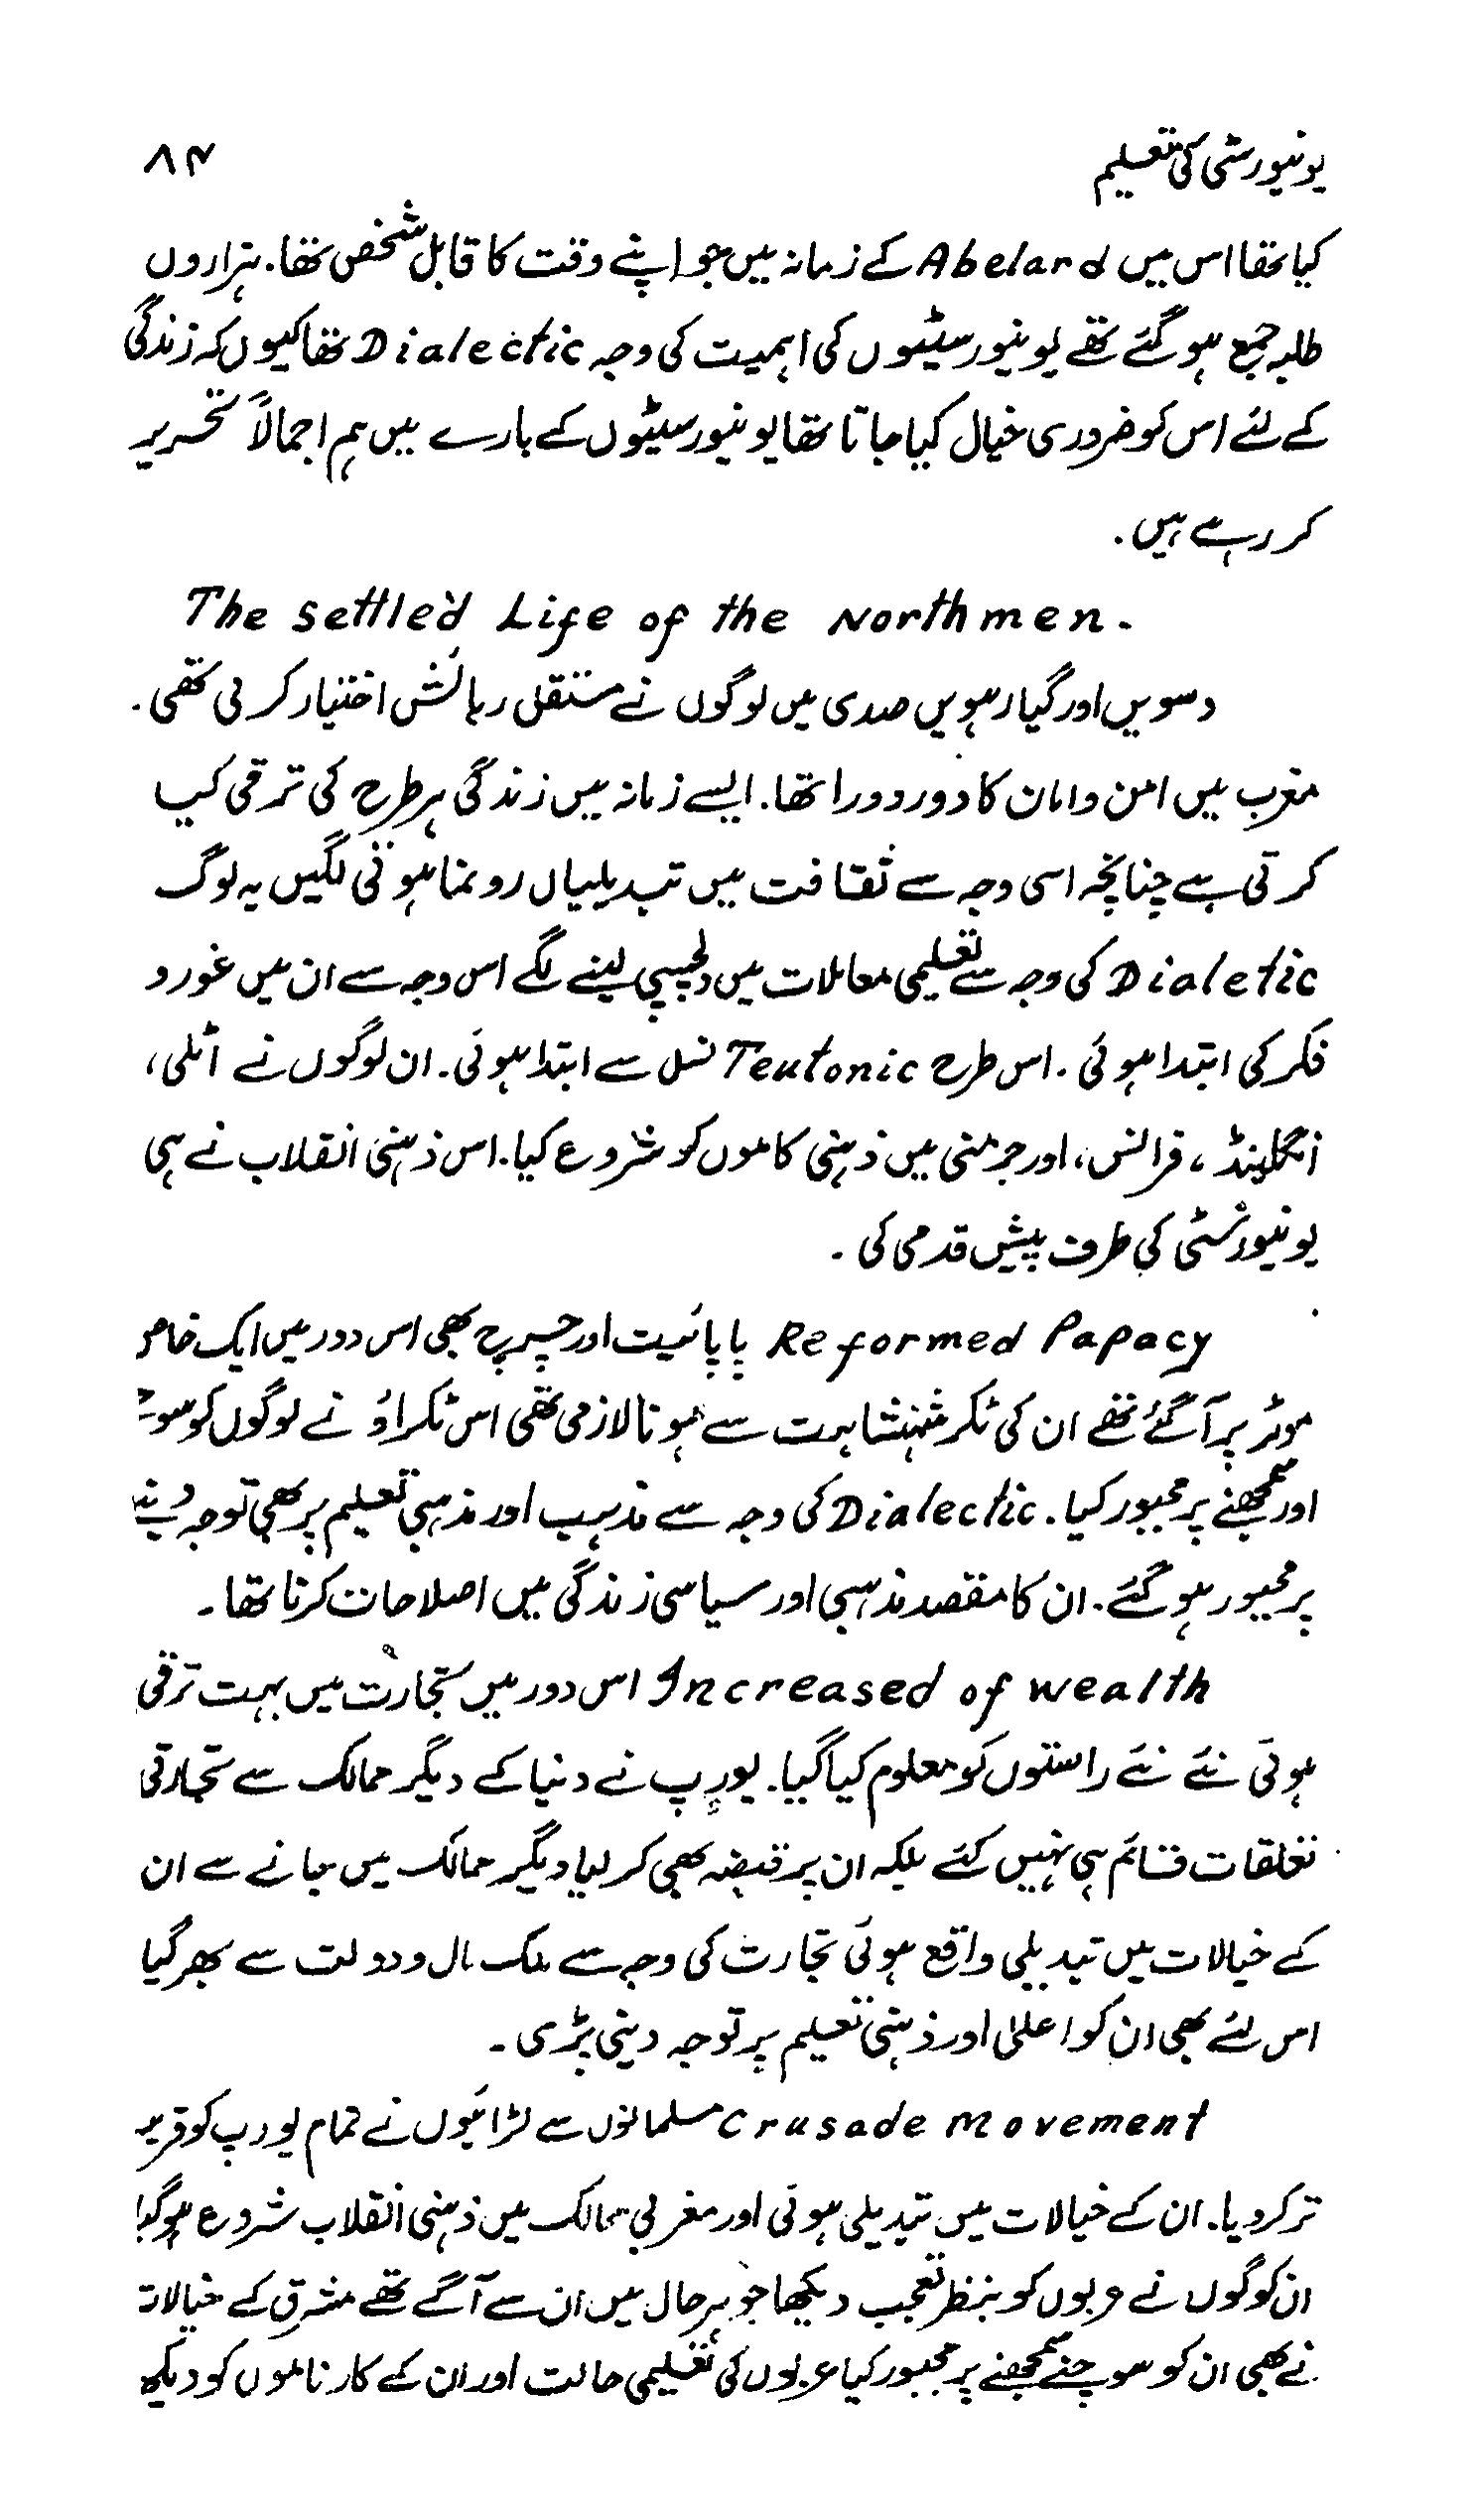 یونیورسٹی کی تعلیم ۸۴
کیا تھا اس میں Abelard کے زمانہ میں جو اپنے وقت کا قابل شخص تھا۔ ہزاروں
طلبہ جمع ہو گئے تھے یونیورسیٹیوں کی اہمیت کی وجہ Dialectic تھا کیوں کہ زندگی
کے لئے اس کو ضروری خیال کیا جاتا تھا یونیورسیٹیوں کے بارے میں ہم اجمالاً تحریر
کر رہے ہیں۔
The settled Life of the Northmen.
دسویں اور گیارہویں صدی میں لوگوں نے مستقل رہائش اختیار کر لی تھی۔
مغرب میں امن و امان کا دور دورا تھا۔ ایسے زمانہ میں زندگی ہر طرح کی ترقی کیا
کرتی ہے چنانچہ اسی وجہ سے ثقافت میں تبدیلیاں رونما ہونی لگیں یہ لوگ
Dialetic کی وجہ سے تعلیمی معاملات میں دلچسپی لینے لگے اس وجہ سے ان میں غور و
فکر کی ابتدا ہوئی۔ اس طرح Teutonic نسل سے ابتدا ہوئی۔ ان لوگوں نے اٹلی،
انگلینڈ، فرانس، اور جرمنی میں ذہنی کاموں کو شروع کیا۔ اس ذہنی انقلاب نے ہی
یونیورسٹی کی طرف پیش قدمی کی۔
Reformed Papacy پاپائیت اور چرچ بھی اس دور میں ایک خاص
موڑ پر آگئے تھے ان کی ٹکر شہنشاہیت سے ہونا لازمی تھی اس ٹکراؤ نے لوگوں کو
اور سمجھنے پر مجبور کیا۔ Dialectic کی وجہ سے مذہب اور مذہبی تعلیم پر بھی توجہ دینے
پر مجبور ہو گئے۔ ان کا مقصد مذہبی اور سیاسی زندگی میں اصلاحات کرنا تھا۔
Increased of wealth اس دور میں تجارت میں بہت ترقی
ہوئی نئے نئے راستوں کو معلوم کیا گیا۔ یورپ نے دنیا کے دیگر ممالک سے تجارتی
تعلقات قائم ہی نہیں کئے بلکہ ان پر قبضہ بھی کر لیا دیگر ممالک میں جانے سے ان
کے خیالات میں تبدیلی واقع ہوئی تجارت کی وجہ سے ملک مال و دولت سے بھر گیا
اس لئے بھی ان کو اعلیٰ اور ذہنی تعلیم پر توجہ دینی پڑی۔
Crusade Movement مسلمانوں سے لڑائیوں نے تمام یورپ کو
تر کر دیا۔ ان کے خیالات میں تبدیلی ہوئی اور مغربی ممالک میں ذہنی انقلاب شروع ہو گیا
ان لوگوں نے عربوں کو بنظر تعجب دیکھا جو ہر حال میں ان سے آگے تھے مشرق کے خیالات
نے بھی ان کو سوچنے سمجھنے پر مجبور کیا عربوں کی تعلیمی حالت اور ان کے کارناموں کو دیکھ